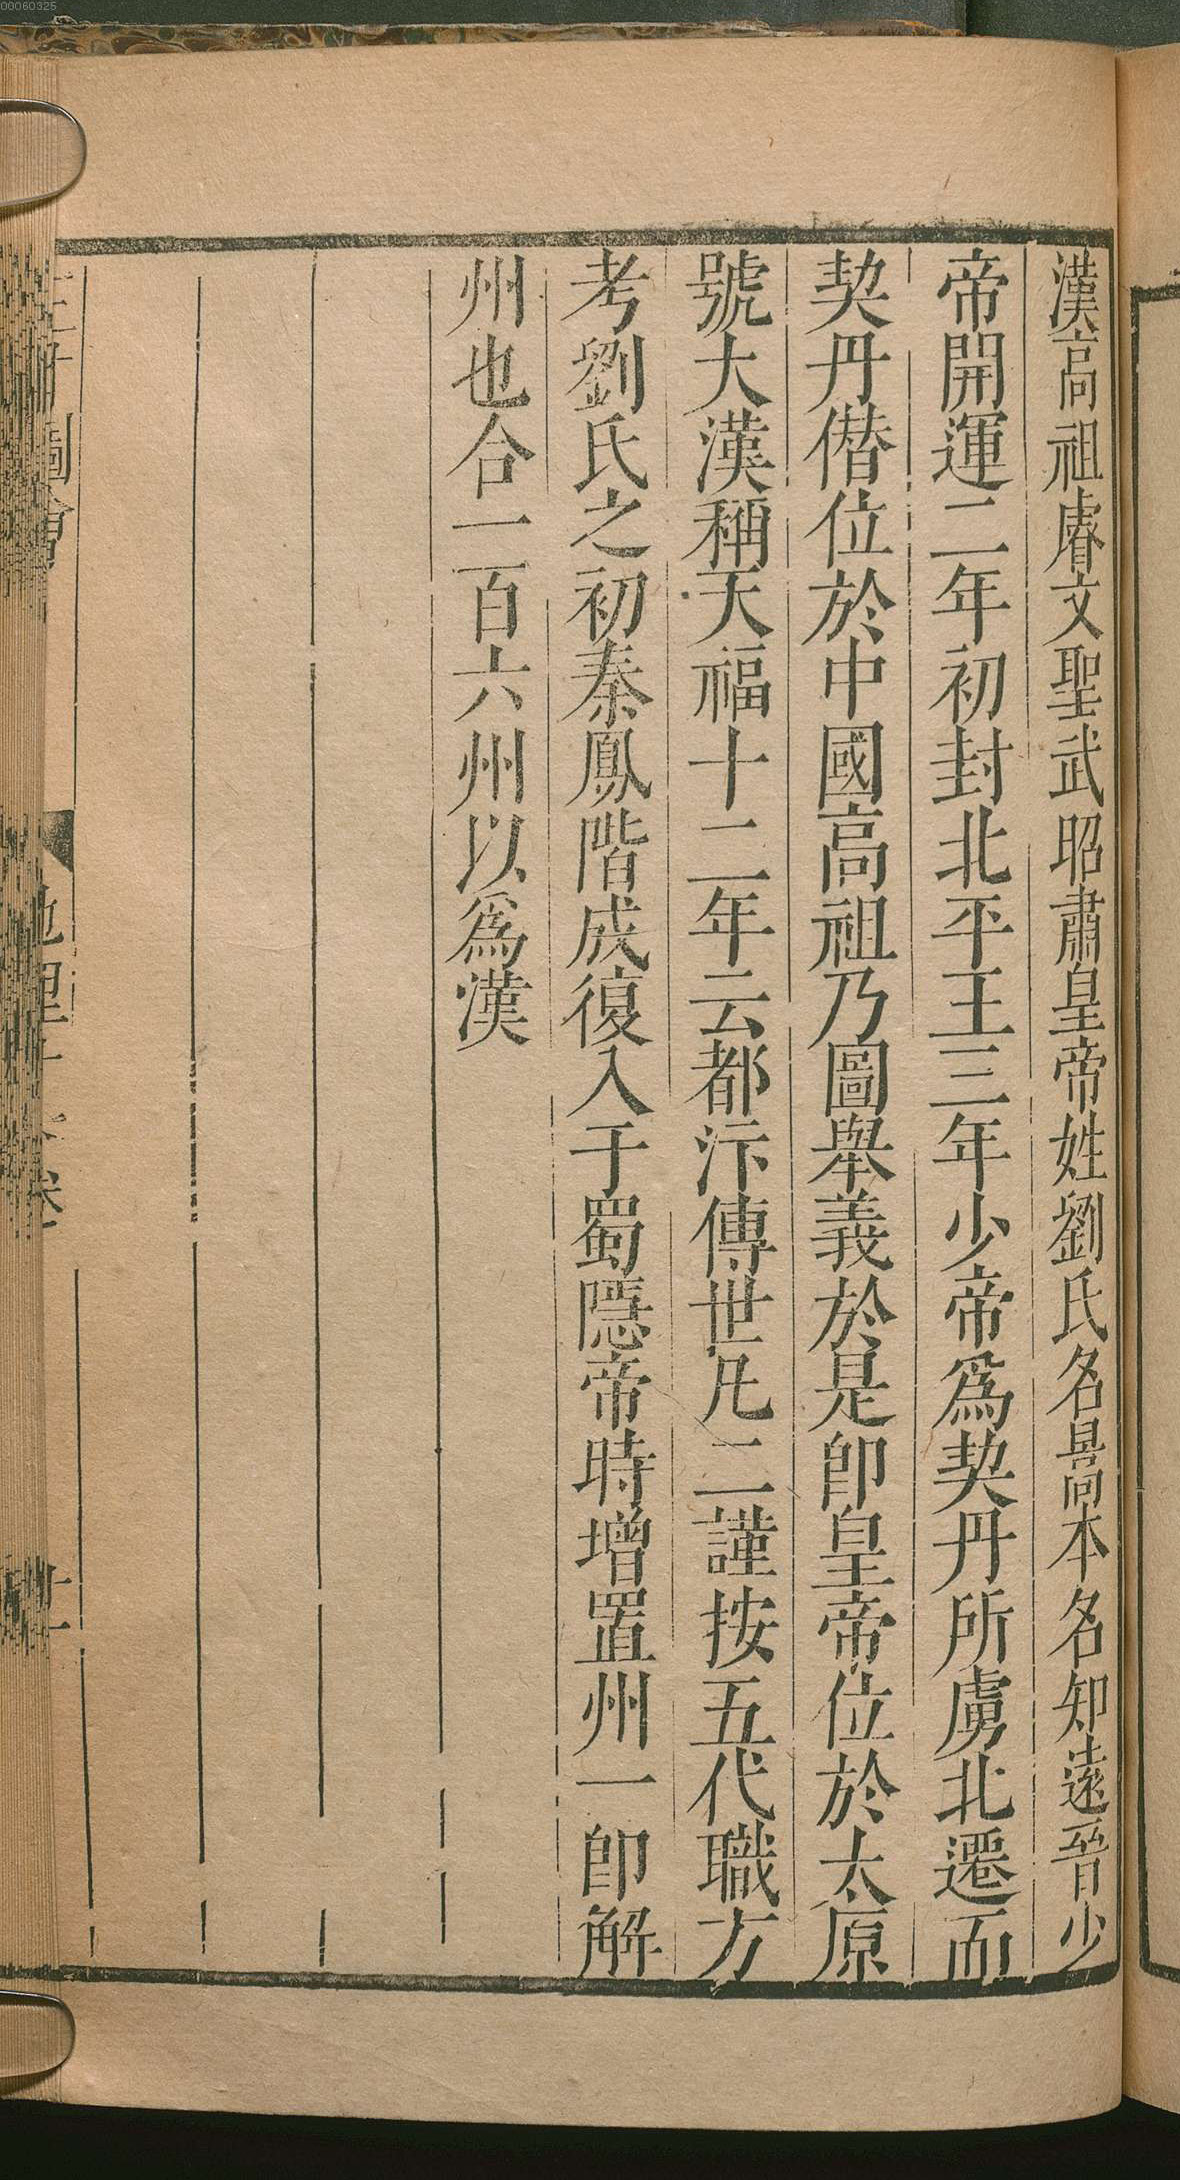 00060325
漢高祖睿文聖武昭肅皇帝姓劉氏名暠本名知遠晉少
帝開運二年初封北平王三年少帝爲契丹所虜北遷而
契丹僭位於中國高祖乃圖舉義於是卽皇帝位於太原
號大漢稱天福十二年云都汴傳世凡二謹按五代職方
考劉氏之初秦鳳階成復入于蜀隱帝時增置州一卽解
州也合一百六州以爲漢